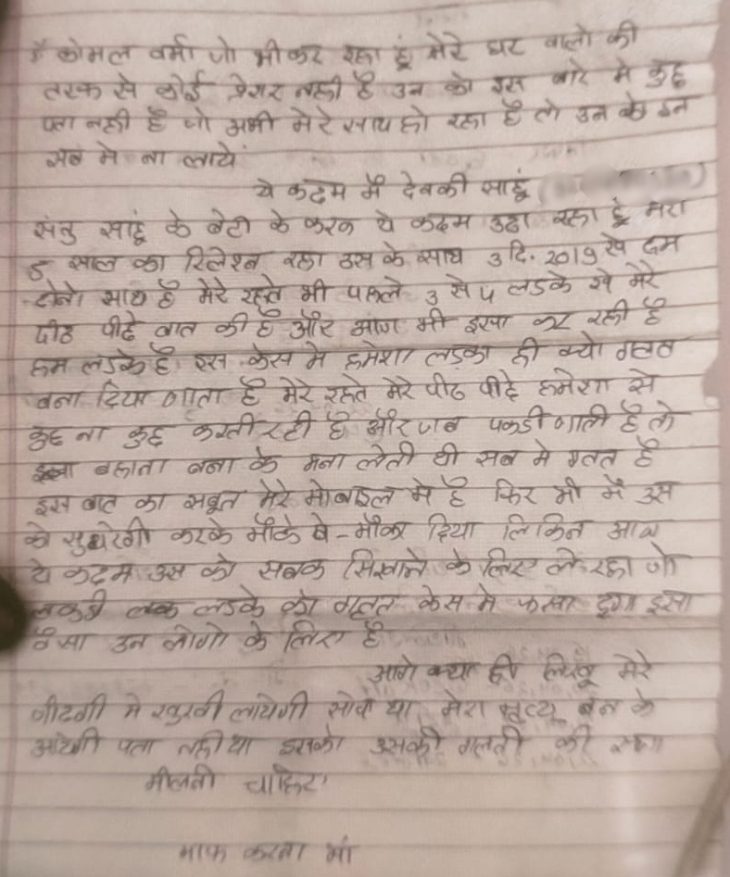 मैं कोमल वर्मा जो भी कर रहा हूं मेरे घर वालो की
तरफ से कोई प्रेसर नही है उन को इस बारे मे कुछ
पता नही है जो अभी मेरे साथ हो रहा है तो उन को इन
सब मे ना लाये
ये कदम मैं देवकी साहूं
संतु साहूं के बेटी के करन ये कदम उठा रहा हूं मेरा
5 साल का रिलेशन रहा उस के साथ 3 दि. 2019 से हम
दोनो साथ है मेरे रहते भी पहले 3 से 4 लडके से मेरे
पीठ पीछे बात की है और आज भी इसा कर रही है
हम लडके है इस केस मे हमेशा लडका ही क्यो गलत
बना दिया जाता है मेरे रहते मेरे पीठ पीछे हमेशा से
कुछ ना कुछ करती रही है और जब पकडी जाती है तो
बहाना बना के मना लेती थी सब मे गलत है
इस बात का सबूत मेरे मोबाइल मे है फिर भी मैं उस
को सुधरेगी करके मौके बे-मौका दिया लिकिन आज
ये कदम उस को सबक सिखाने के लिए ले रहा जो
लडके को गलत केस मे फसा इसा
वैसा उन लोगो के लिए है
आगे क्या ही लिखू मेरे
जीदगी मे खुसी लायेगी सोचा था मेरा मृत्यू बन के
आयेगी पता नही था इसको उसकी गलती की सजा
मीलनी चाहिए
माफ करना मां